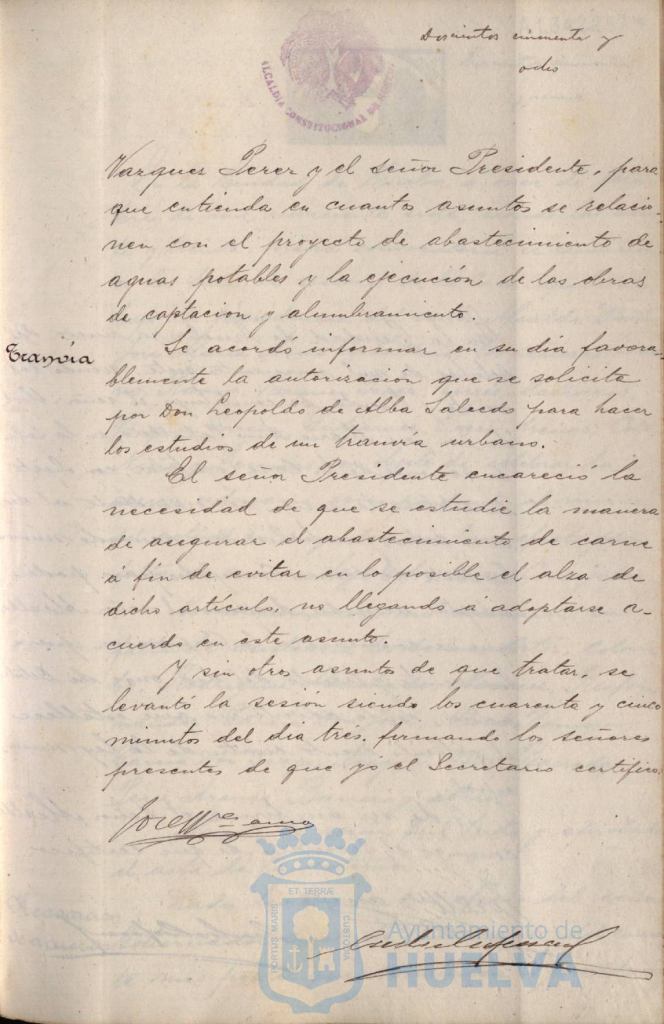 Doscientos cincuenta y
ocho
ALCALDIA CONSTITUCIONAL DE HUELVA
Vazquez Perez y el señor Presidente, para
que entienda en cuantos asuntos se relacio-
nen con el proyecto de abastecimiento de
aguas potables y la ejecución de las obras
de captacion y alumbramiento.
Tranvia
Se acordó informar en su dia favora-
blemente la autorización que se solicita
por Don Leopoldo de Alba Salcedo para hacer
los estudios de un tranvia urbano.
El señor Presidente encareció la
necesidad de que se estudie la manera
de asegurar el abastecimiento de carne
á fin de evitar en lo posible el alza de
dicho artículo, no llegando á adoptarse a-
cuerdo en este asunto.
Y sin otros asuntos de que tratar, se
levantó la sesión siendo los cuarenta y cinco
minutos del dia tres, firmando los señores
presentes de que yo el Secretario certifico.
PORTUS MARIS
ET TERRÆ
CUSTODIA
Ayuntamiento de
HUELVA